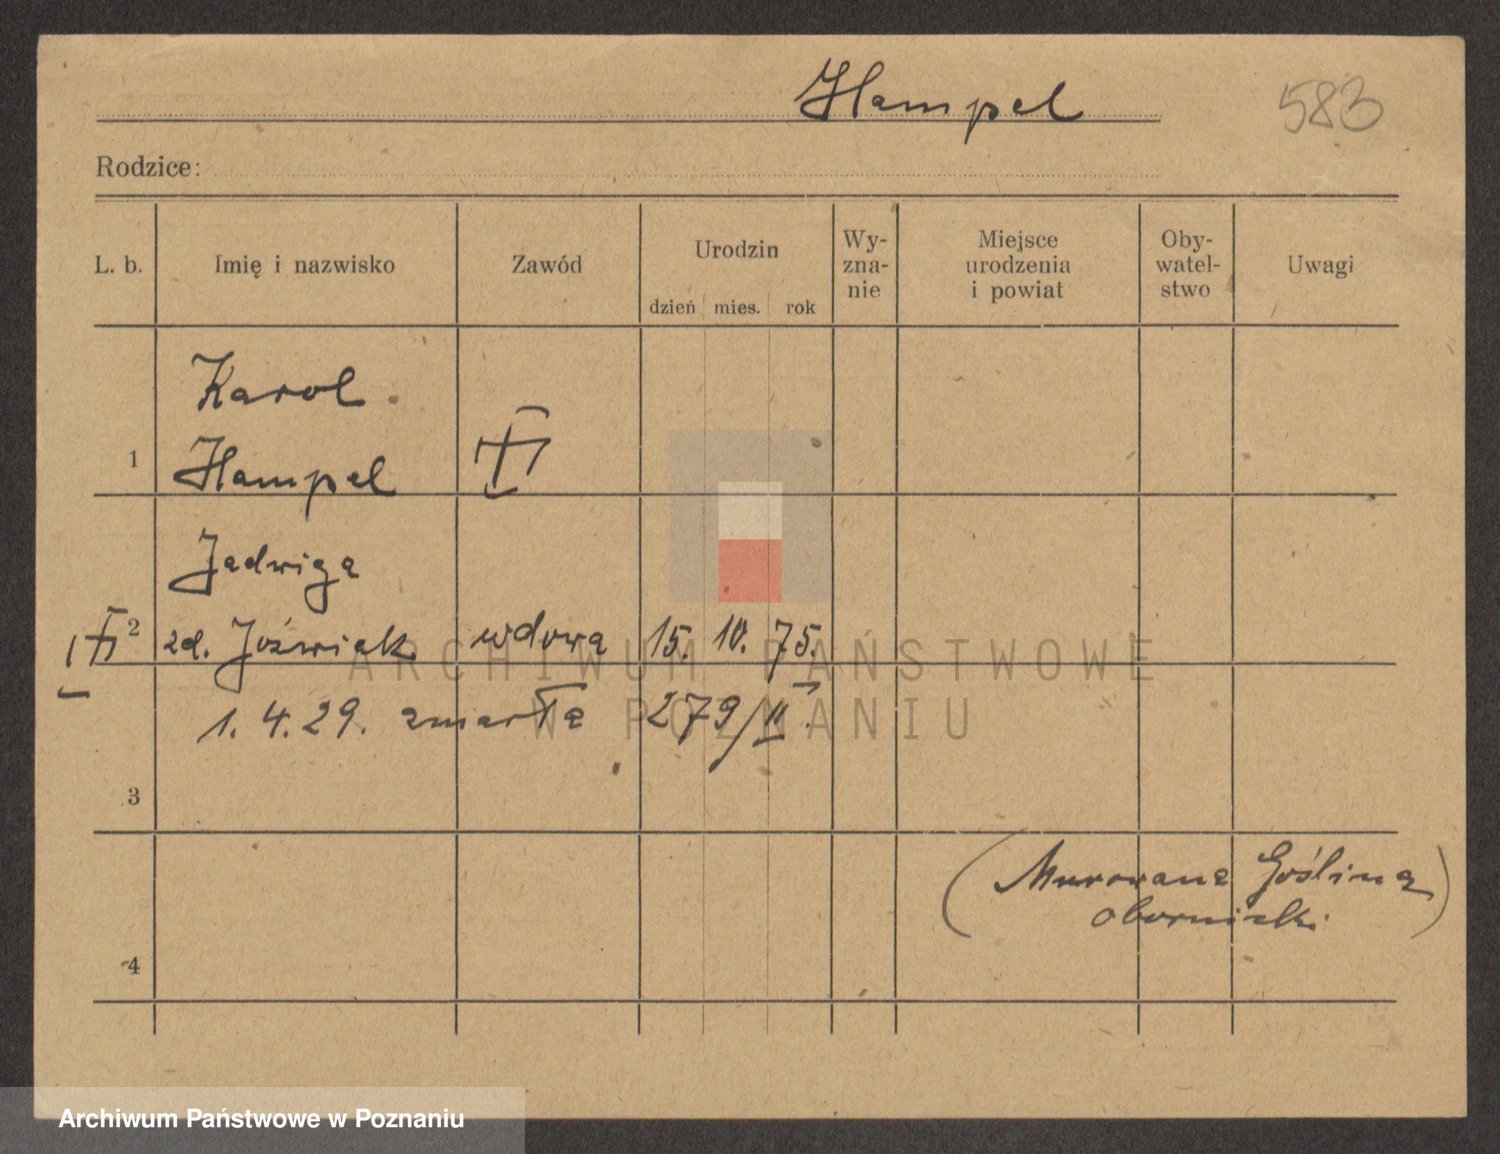 Hampel
583
Rodzice:
L. b.
Imię i nazwisko
Zawód
Urodzin
dzień
mies.
rok
Wy-
zna-
nie
Miejsce
urodzenia
i powiat
Oby-
watel-
stwo
Uwagi
Karol
1
Hampel
Jadwiga
2
zd. Jóźwiak
wdowa
15. 10. 75.
1. 4. 29. zmarła 279/II
3
(Murowana Goślina
obornicki)
4
ARCHIWUM PAŃSTWOWE
W POZNANIU
Archiwum Państwowe w Poznaniu